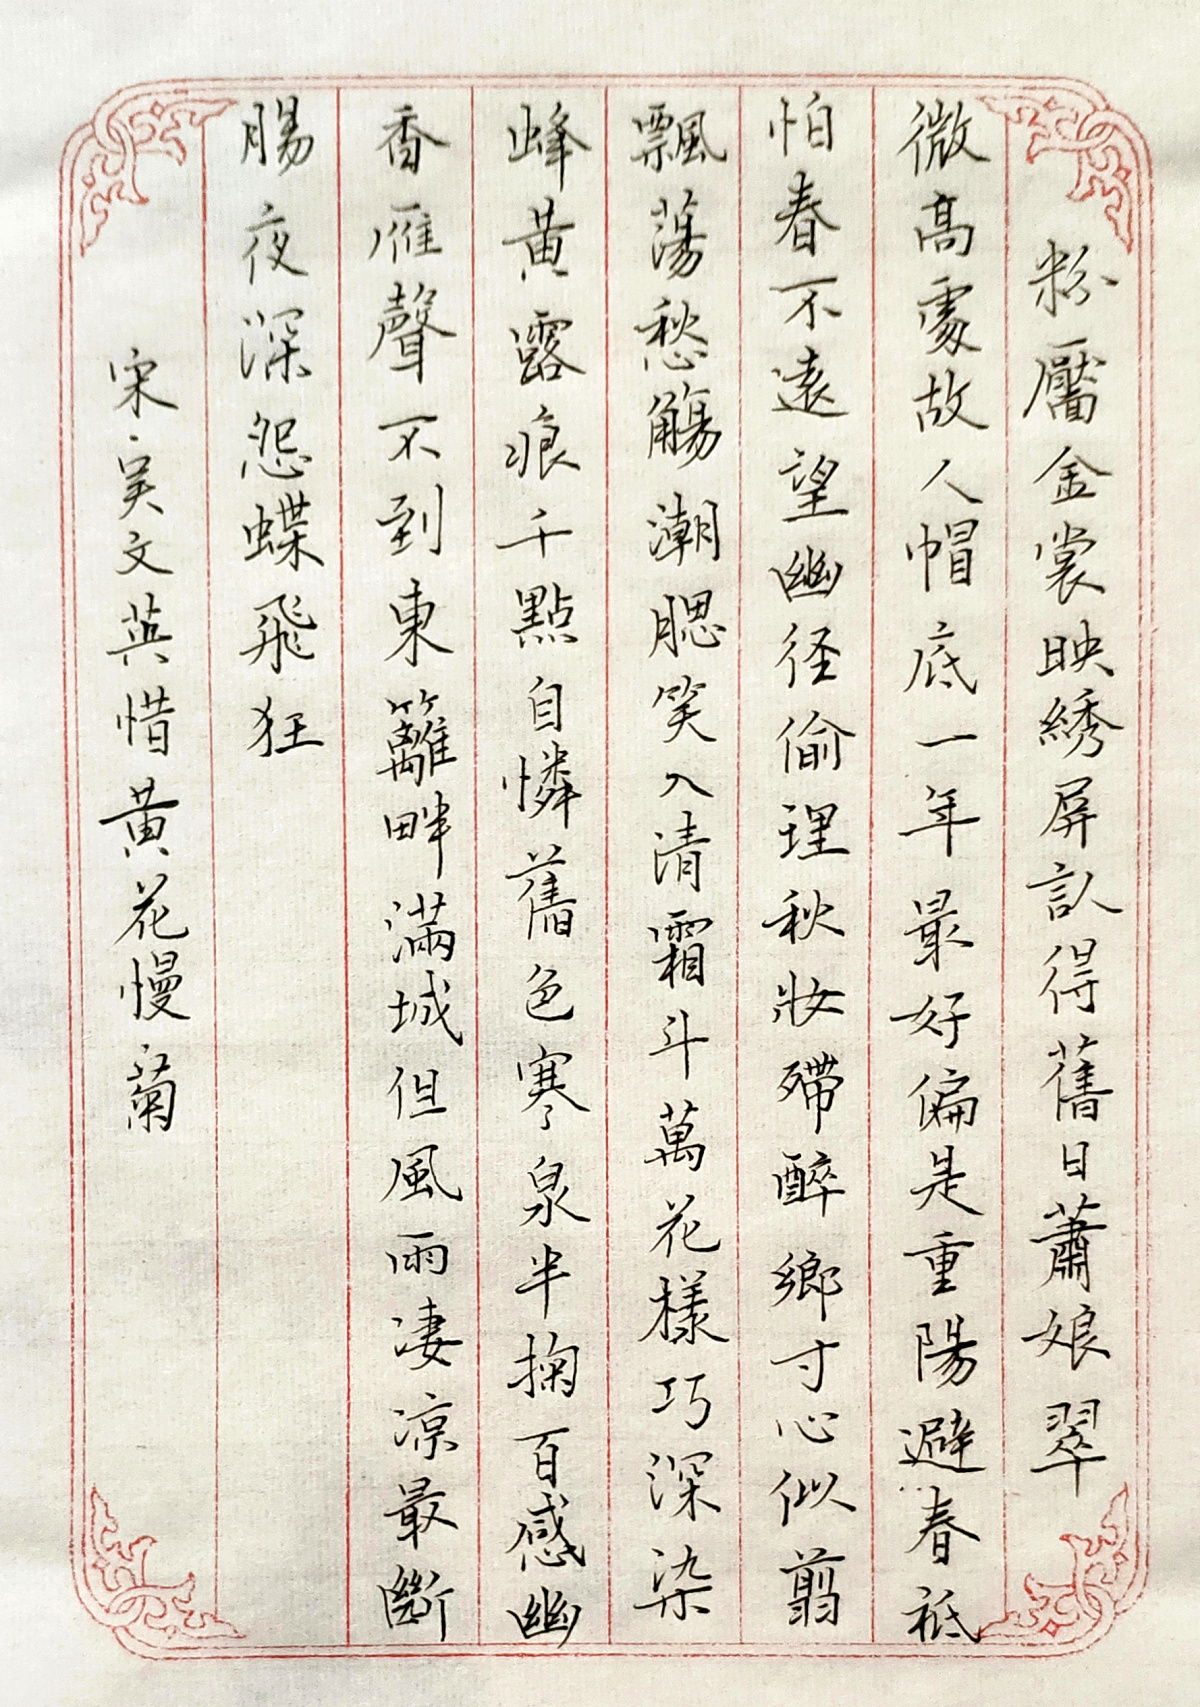 粉靨金裳映綉屏認得舊日蕭娘翠
微高處故人帽底一年最好偏是重陽避春祗
怕春不遠望幽径偷理秋妝殢醉鄉寸心似翦
飄蕩愁觴潮腮笑入清霜斗萬花樣巧深染
蜂黃露痕千點自憐舊色寒泉半掬百感幽
香雁聲不到東籬畔滿城但風雨凄凉最斷
腸夜深怨蝶飛狂
宋·吴文英惜黃花慢菊